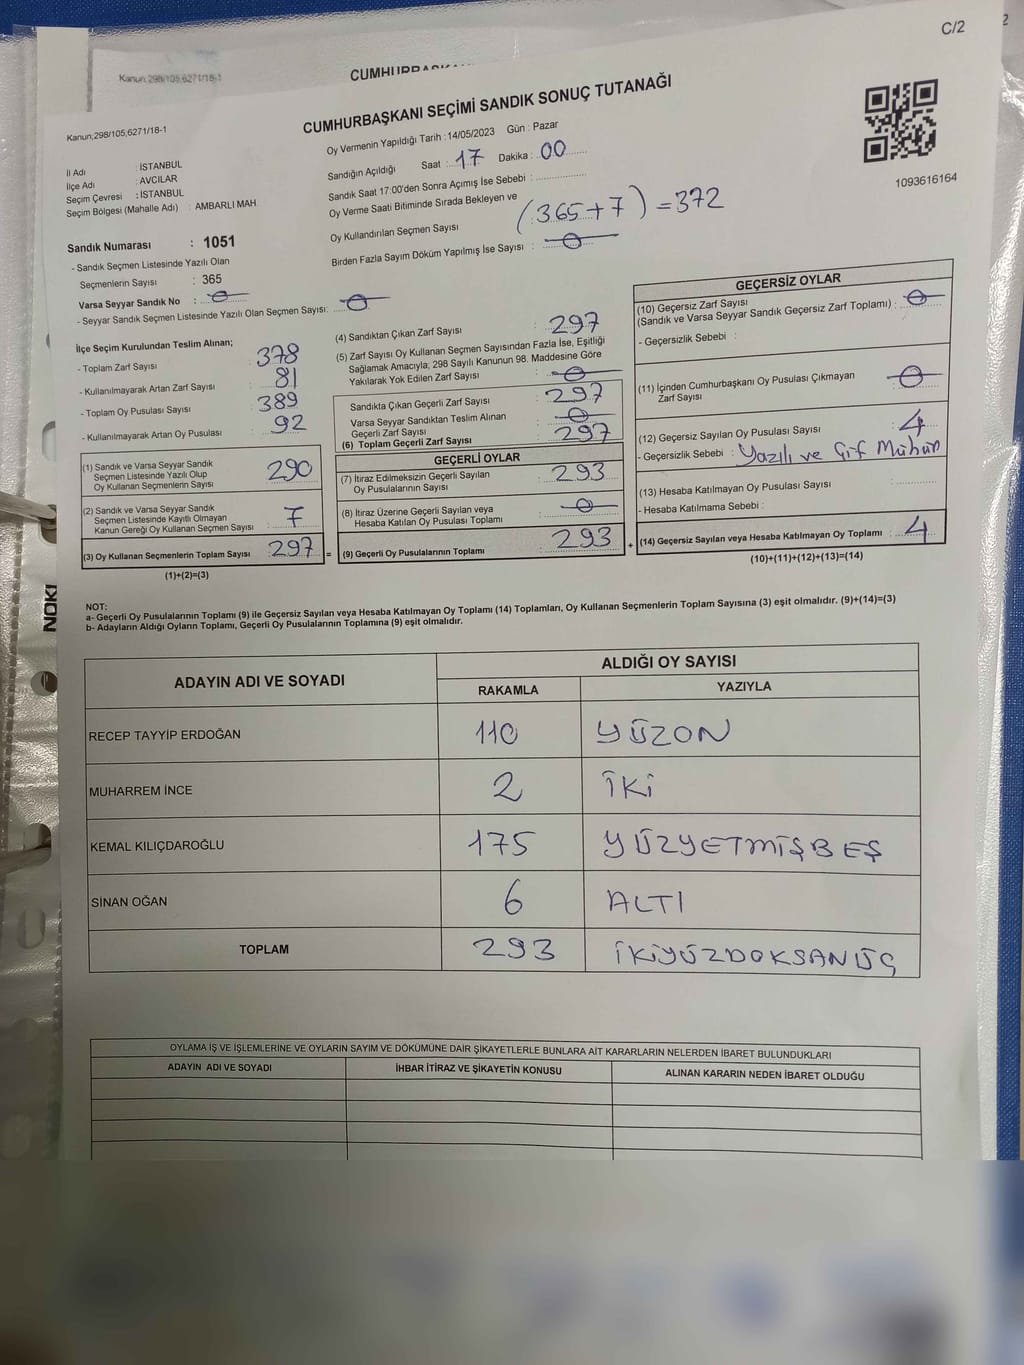 C/2
2
Kanun;298/105;6271/18-1
CUMHURBAŞKANI SEÇİMİ SANDIK SONUÇ TUTANAĞI
Kanun;298/105;6271/18-1
Oy Vermenin Yapıldığı Tarih : 14/05/2023 Gün : Pazar
Sandığın Açıldığı Saat : 17 Dakika : 00
Sandık Saat 17:00'den Sonra Açımış İse Sebebi :
Oy Verme Saati Bitiminde Sırada Bekleyen ve
Oy Kullandırılan Seçmen Sayısı (365+7)=372
Birden Fazla Sayım Döküm Yapılmış İse Sayısı : 0
1093616164
İl Adı : İSTANBUL
İlçe Adı : AVCILAR
Seçim Çevresi : İSTANBUL
Seçim Bölgesi (Mahalle Adı) : AMBARLI MAH
Sandık Numarası : 1051
- Sandık Seçmen Listesinde Yazılı Olan
Seçmenlerin Sayısı : 365
Varsa Seyyar Sandık No : 0
- Seyyar Sandık Seçmen Listesinde Yazılı Olan Seçmen Sayısı: 0
İlçe Seçim Kurulundan Teslim Alınan;
- Toplam Zarf Sayısı : 378
- Kullanılmayarak Artan Zarf Sayısı : 81
- Toplam Oy Pusulası Sayısı : 389
- Kullanılmayarak Artan Oy Pusulası : 92
(1) Sandık ve Varsa Seyyar Sandık
Seçmen Listesinde Yazılı Olup
Oy Kullanan Seçmenlerin Sayısı 290
(2) Sandık ve Varsa Seyyar Sandık
Seçmen Listesinde Kayıtlı Olmayan
Kanun Gereği Oy Kullanan Seçmen Sayısı : 7
(3) Oy Kullanan Seçmenlerin Toplam Sayısı : 297 =
(1)+(2)=(3)
(4) Sandıktan Çıkan Zarf Sayısı : 297
(5) Zarf Sayısı Oy Kullanan Seçmen Sayısından Fazla İse, Eşitliği
Sağlamak Amacıyla; 298 Sayılı Kanunun 98. Maddesine Göre
Yakılarak Yok Edilen Zarf Sayısı : 0
Sandıkta Çıkan Geçerli Zarf Sayısı : 297
Varsa Seyyar Sandıktan Teslim Alınan
Geçerli Zarf Sayısı : 0
(6) Toplam Geçerli Zarf Sayısı : 297
GEÇERLİ OYLAR
(7) İtiraz Edilmeksizin Geçerli Sayılan
Oy Pusulalarının Sayısı : 293
(8) İtiraz Üzerine Geçerli Sayılan veya
Hesaba Katılan Oy Pusulası Toplamı : 0
(9) Geçerli Oy Pusulalarının Toplamı : 293 +
GEÇERSİZ OYLAR
(10) Geçersiz Zarf Sayısı
(Sandık ve Varsa Seyyar Sandık Geçersiz Zarf Toplamı) : 0
- Geçersizlik Sebebi :
(11) İçinden Cumhurbaşkanı Oy Pusulası Çıkmayan
Zarf Sayısı : 0
(12) Geçersiz Sayılan Oy Pusulası Sayısı : 4
- Geçersizlik Sebebi : Yazılı ve Çif Mühür
(13) Hesaba Katılmayan Oy Pusulası Sayısı :
- Hesaba Katılmama Sebebi :
(14) Geçersiz Sayılan veya Hesaba Katılmayan Oy Toplamı : 4
(10)+(11)+(12)+(13)=(14)
NOKI
NOT:
a- Geçerli Oy Pusulalarının Toplamı (9) ile Geçersiz Sayılan veya Hesaba Katılmayan Oy Toplamı (14) Toplamları, Oy Kullanan Seçmenlerin Toplam Sayısına (3) eşit olmalıdır. (9)+(14)=(3)
b- Adayların Aldığı Oyların Toplamı, Geçerli Oy Pusulalarının Toplamına (9) eşit olmalıdır.
ADAYIN ADI VE SOYADI ALDIĞI OY SAYISI
RAKAMLA YAZIYLA
RECEP TAYYİP ERDOĞAN 110 YÜZON
MUHARREM İNCE 2 İKİ
KEMAL KILIÇDAROĞLU 175 YÜZYETMİŞBEŞ
SİNAN OĞAN 6 ALTI
TOPLAM 293 İKİYÜZDOKSANÜÇ
OYLAMA İŞ VE İŞLEMLERİNE VE OYLARIN SAYIM VE DÖKÜMÜNE DAİR ŞİKAYETLERLE BUNLARA AİT KARARLARIN NELERDEN İBARET BULUNDUKLARI
ADAYIN ADI VE SOYADI İHBAR İTİRAZ VE ŞİKAYETİN KONUSU ALINAN KARARIN NEDEN İBARET OLDUĞU